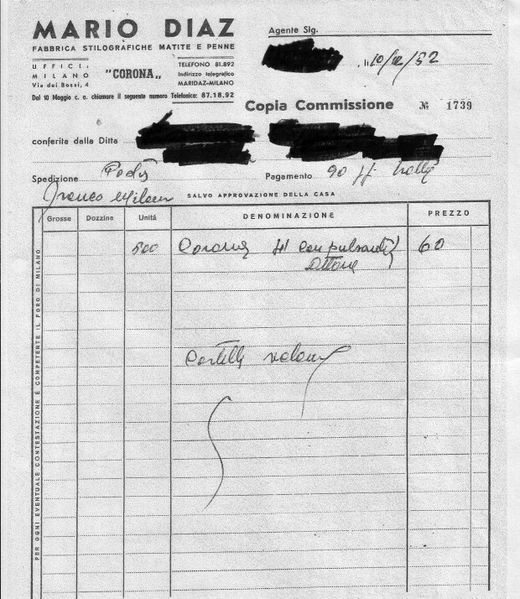 MARIO DIAZ
FABBRICA STILOGRAFICHE MATITE E PENNE
UFFICI:
MILANO
Via dei Bossi, 4
"CORONA"
TELEFONO 81.892
Indirizzo telegrafico
MARIDAZ-MILANO
Dal 10 Maggio c. a. chiamare il seguente numero Telefonico: 87.18.92
Agente Sig.
li 10/12/52
Copia Commissione № 1739
conferita dalla Ditta
Spedizione
Pagamento 90
Franco Milano
SALVO APPROVAZIONE DELLA CASA
Grosse Dozzine Unità DENOMINAZIONE PREZZO
500 Corona con 60
Ottone
PER OGNI EVENTUALE CONTESTAZIONE È COMPETENTE IL FORO DI MILANO